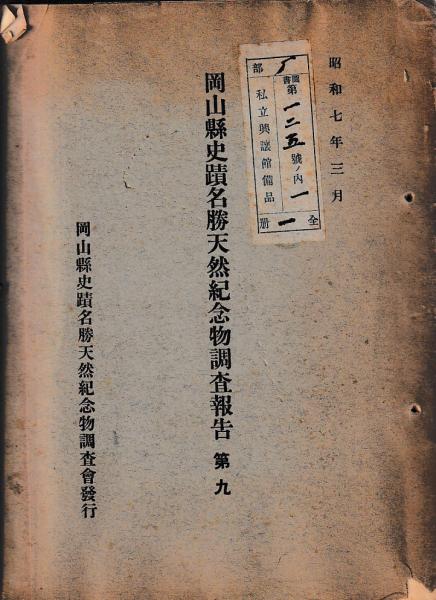 昭和七年三月
部
圖書第一二五號ノ内一
私立興讓館備品
全一册
岡山縣史蹟名勝天然紀念物調査報告 第九
岡山縣史蹟名勝天然紀念物調査會發行